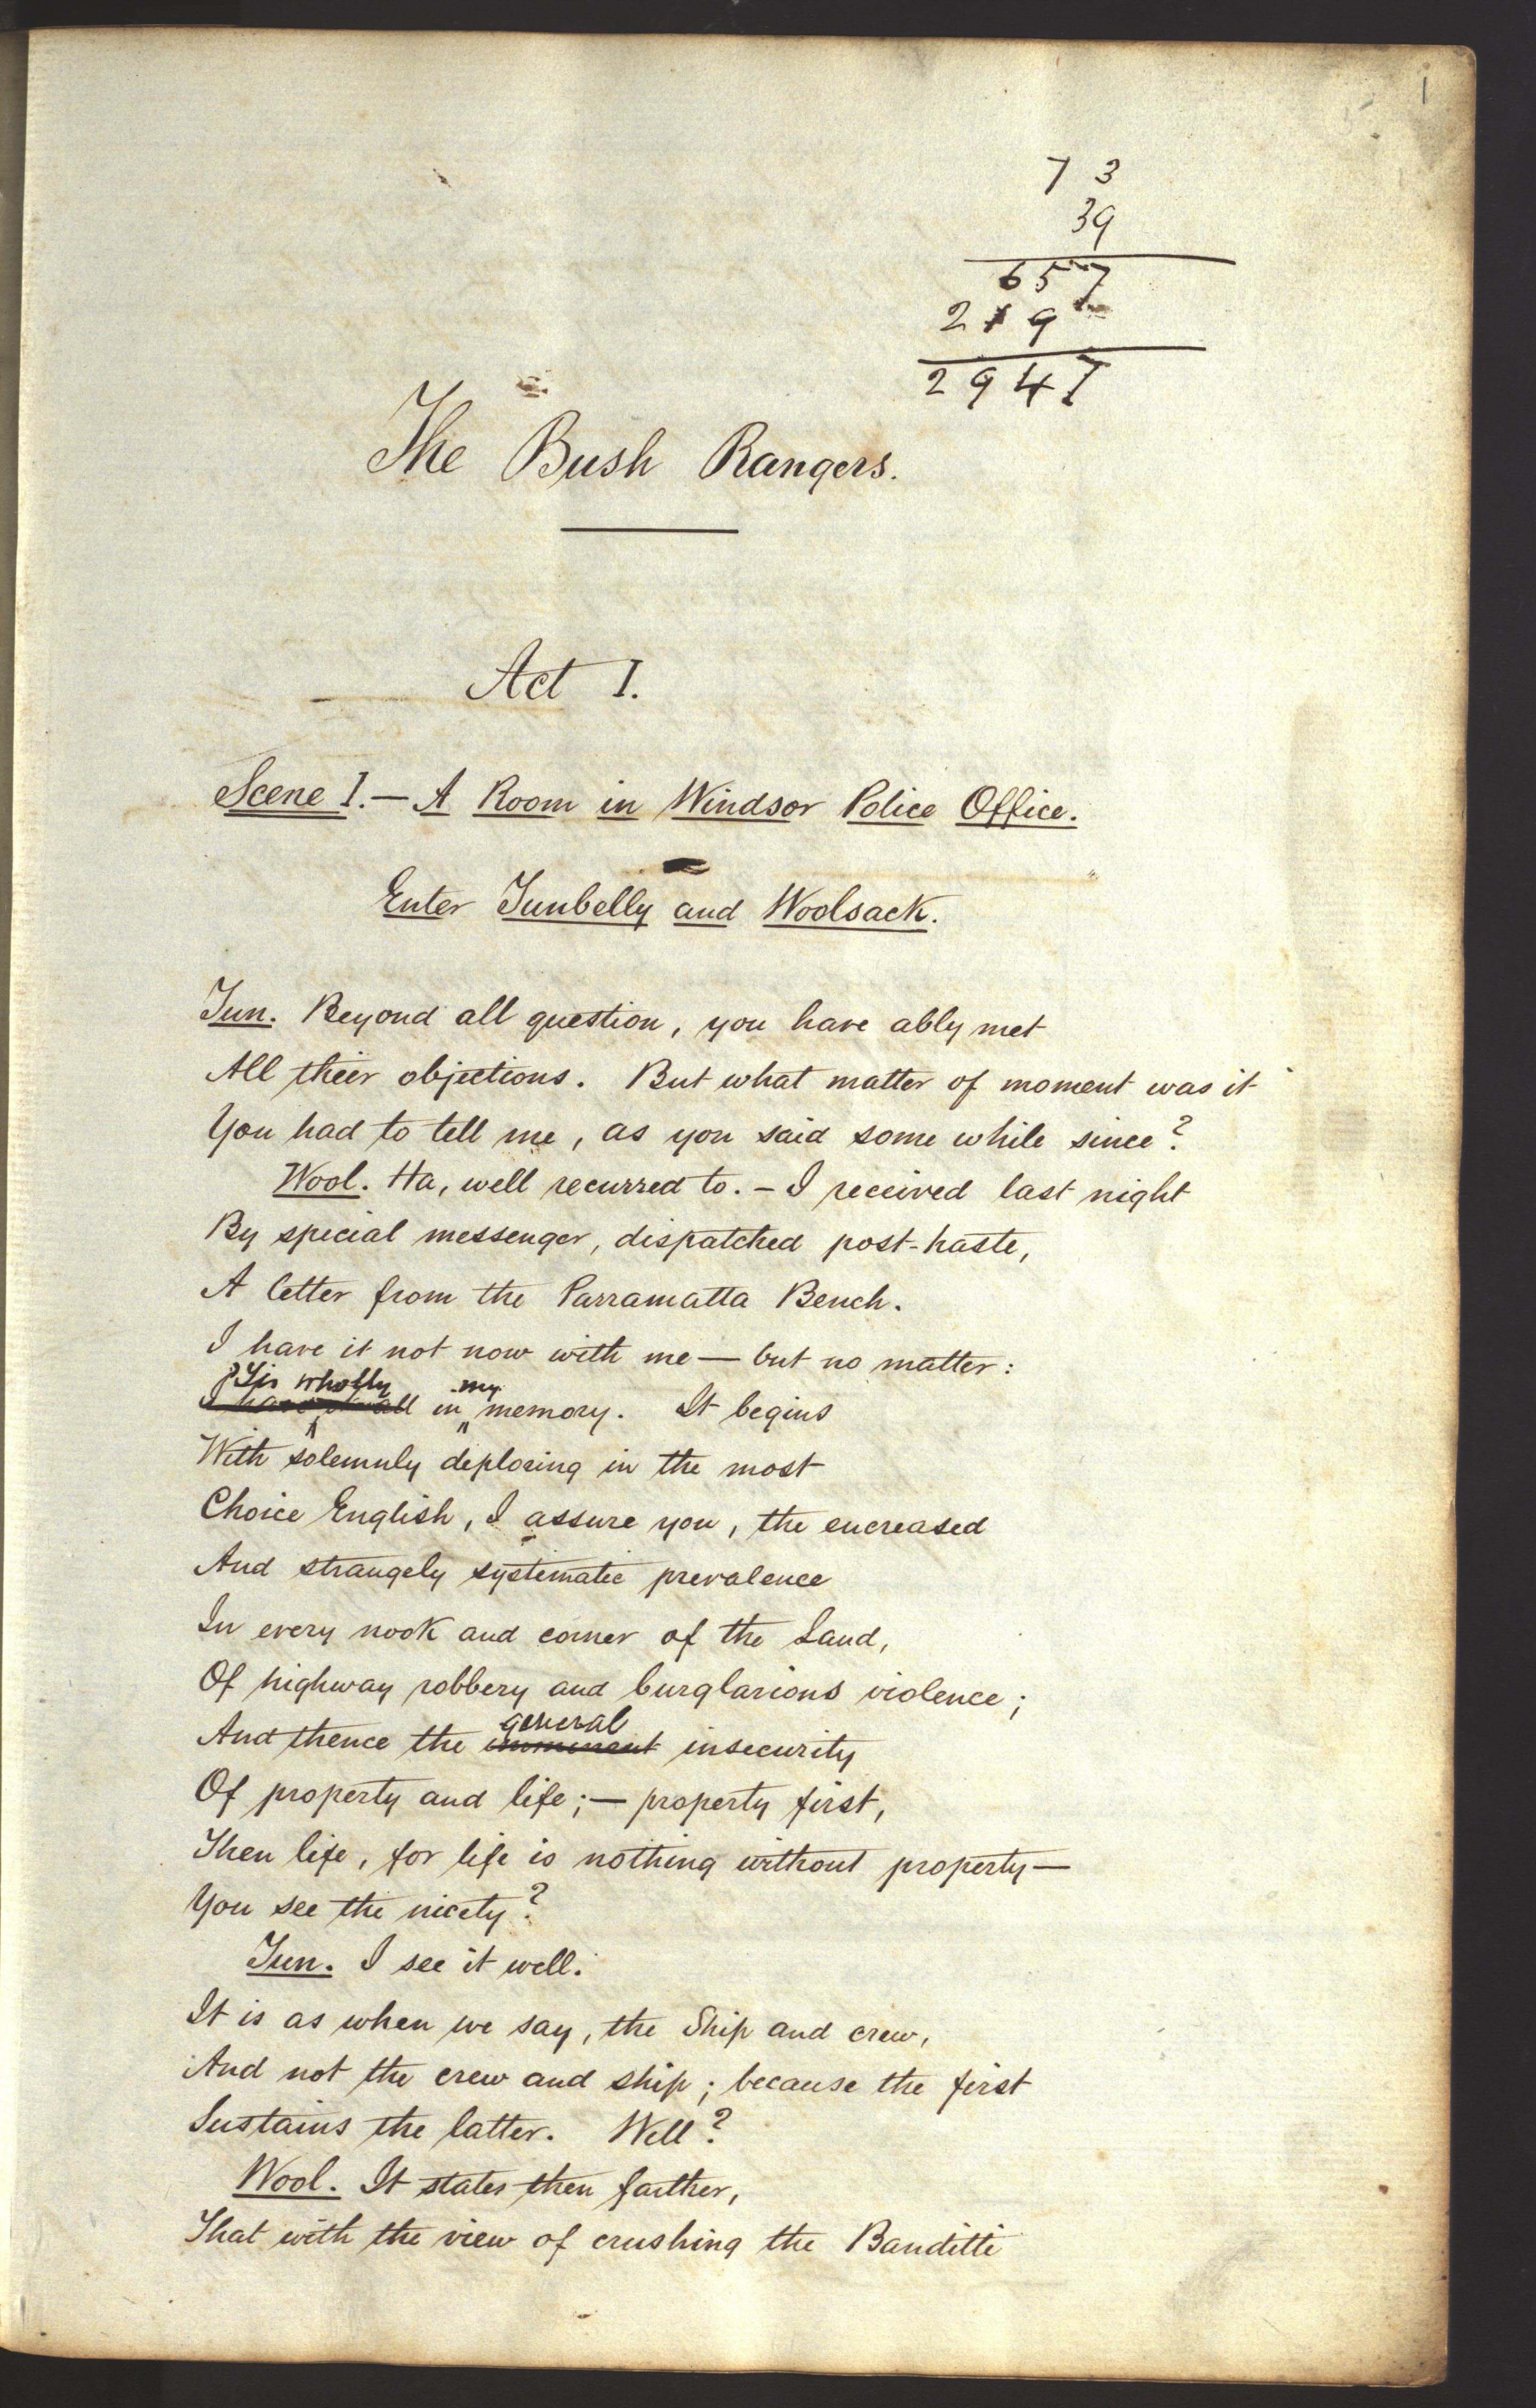 1
7 3
39
657
219
2947
The Bush Rangers.
Act I.
Scene I.— A Room in Windsor Police Office.
Enter Tunbelly and Woolsack.
Tun. Beyond all question, you have ably met
All their objections. But what matter of moment was it
You had to tell me, as you said some while since?
Wool. Ha, well recurred to. — I received last night
By special messenger, dispatched post-haste,
A letter from the Parramatta Bench.
I have it not now with me — but no matter:
'Tis wholly my
I have it all in memory. It begins
With solemnly deploring in the most
Choice English, I assure you, the encreased
And strangely systematic prevalence
In every nook and corner of the Land,
Of highway robbery and burglarious violence;
general
And thence the imminent insecurity
Of property and life; — property first,
Then life, for life is nothing without property —
You see the nicety?
Tun. I see it well.
It is as when we say, the Ship and crew,
And not the crew and ship; because the first
Sustains the latter. Well?
Wool. It states then farther,
That with the view of crushing the Banditti